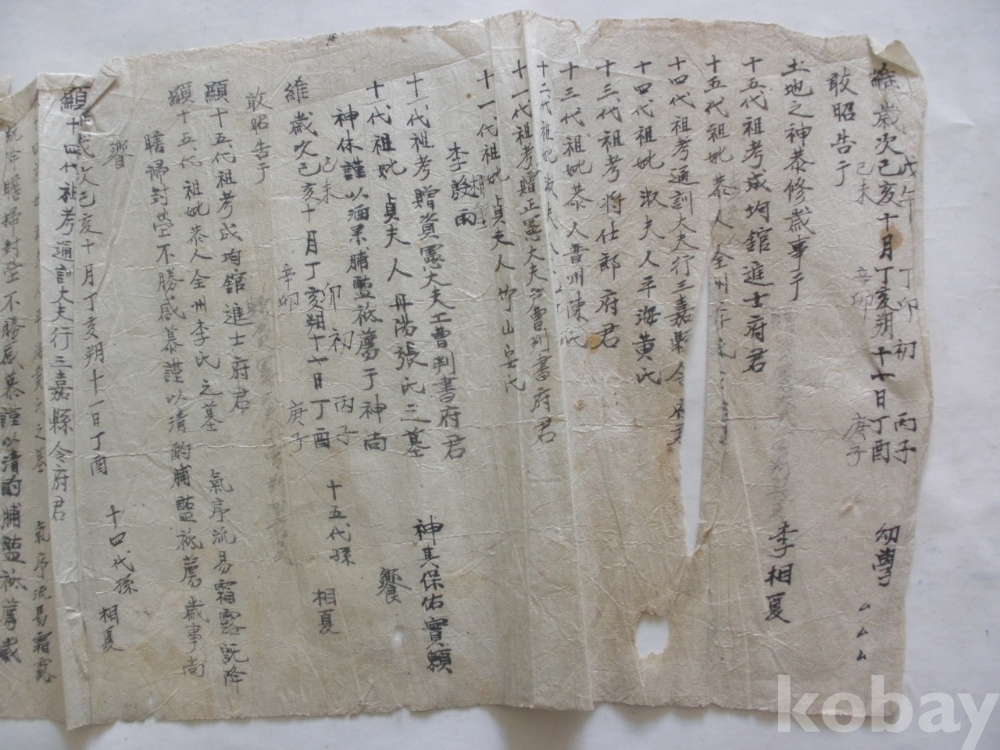 戊午 丁卯 初 丙子 幼學 厶厶厶
維歲次己亥十月丁亥朔十一日丁酉
己未 辛卯 庚子
敢昭告于 李相夏
土地之神恭修歲事于
十五代祖考成均館進士府君
十五代祖妣恭人全州李氏
十四代祖考通訓大夫行三嘉縣令府君
十四代祖妣淑夫人平海黃氏
十三代祖考將仕郎府君
十三代祖妣恭人晋州陳氏
十二代祖妣淑夫人
十一代祖考贈正憲大夫工曹判書府君
十一代祖妣貞夫人竹山安氏
李
十一代祖考贈資憲大夫工曹判書府君
十一代祖妣貞夫人丹陽張氏之墓 神其保佑實賴
神休謹以酒果脯醢祗薦于神尚 饗
己未 卯 初 丙子 十五代孫 相夏
維歲次己亥十月丁亥朔十一日丁酉
辛卯 庚子
敢昭告于
顯十五代祖考成均館進士府君
顯十五代祖妣恭人全州李氏之墓 氣序流易霜露旣降
瞻掃封塋不勝感慕謹以清酌脯醢祗薦歲事尚
饗
維歲次己亥十月丁亥朔十一日丁酉 十四代孫 相夏
顯十四代祖考通訓大夫行三嘉縣令府君
之墓 氣序流易霜露
旣降瞻掃封塋不勝感慕謹以清酌脯醢祗薦歲
kobay